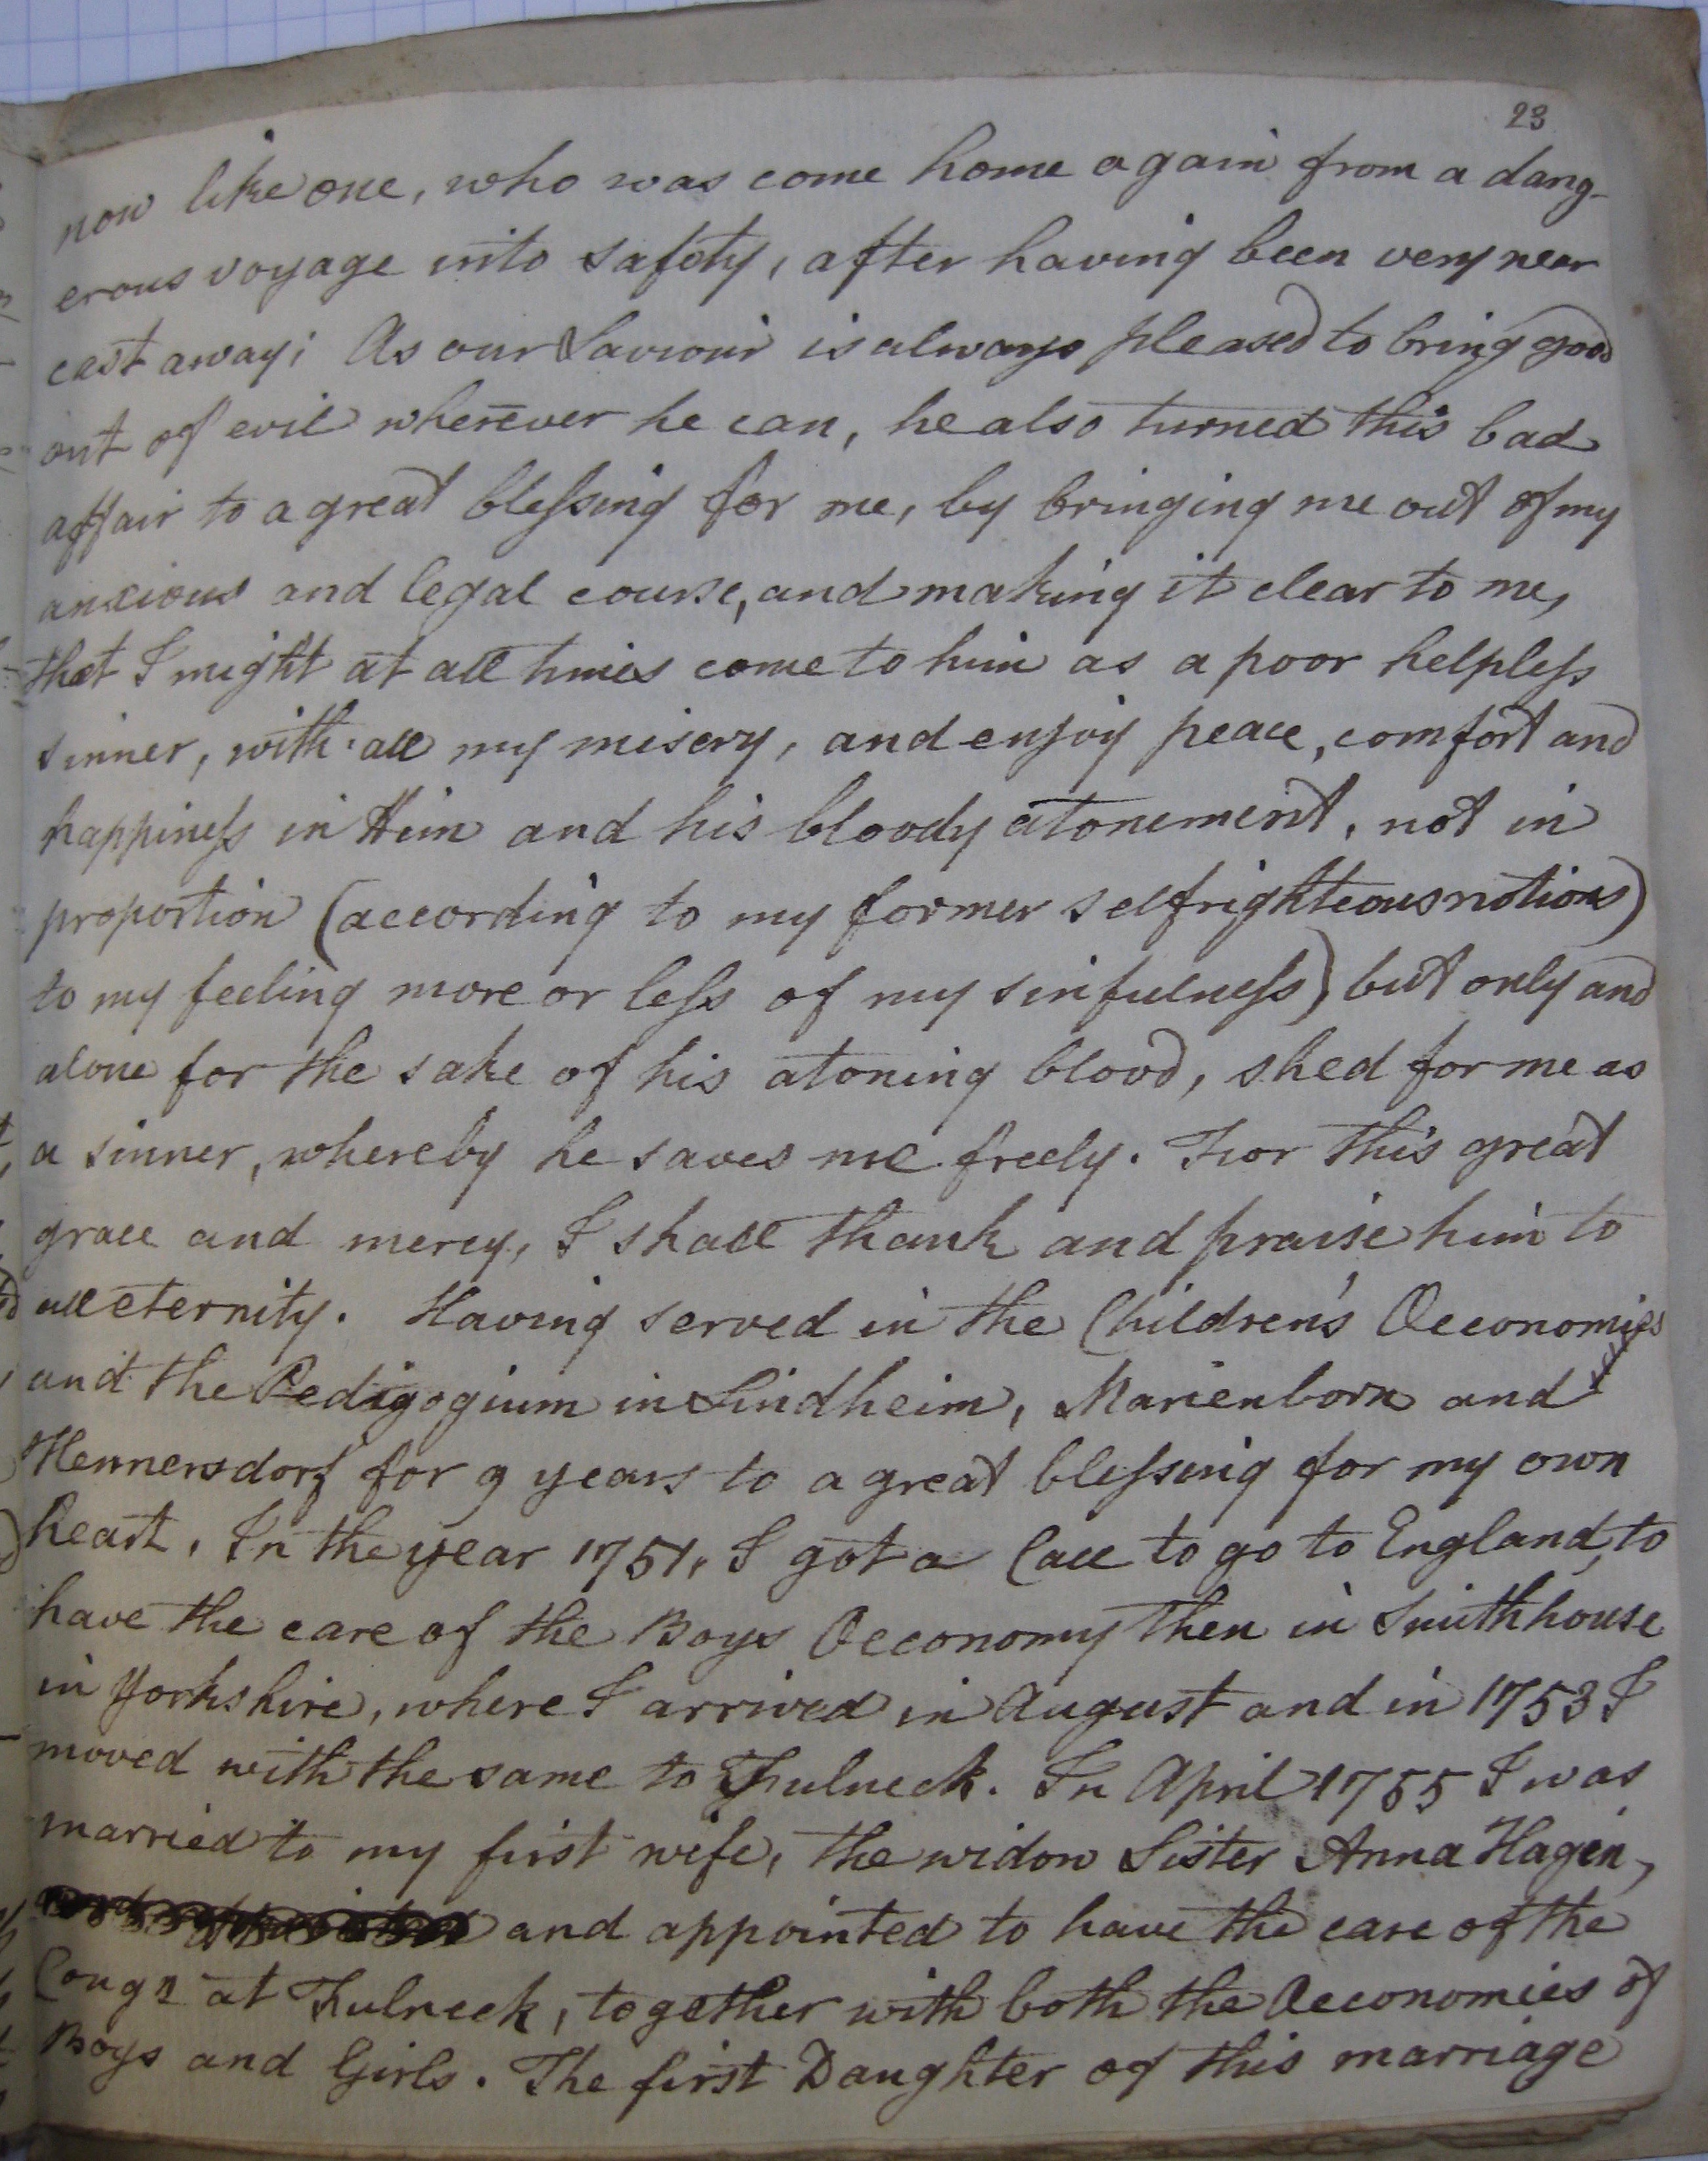 23
now like one, who was come home again from a dang-
erous voyage into safety, after having been very near
cast away; As our Saviour is always pleased to bring good
out of evil wherever he can, he also turned this bad
affair to a great blessing for me, by bringing me out of my
anxious and legal course, and making it clear to me,
that I might at all times come to him as a poor helpless
sinner, with all my misery, and enjoy peace, comfort and
happiness in Him and his bloody atonement, not in
proportion (according to my former selfrighteous notions)
to my feeling more or less of my sinfulness) but only and
alone for the sake of his atoning blood, shed for me as
a sinner, whereby he saves me freely. For this great
grace and mercy, I shall thank and praise him to
all eternity. Having served in the Children's Oeconomies
and the Pedigogium in Lindheim, Marienborn and
Hennersdorf for 9 years to a great blessing for my own
heart, In the year 1751, I got a Call to go to England, to
have the care of the Boys Oeconomy then in Smithhouse
in Yorkshire, where I arrived in August and in 1753 I
moved with the same to Fulneck. In April 1755 I was
married to my first wife, the widow Sister Anna Hagen,
and appointed to have the care of the
Congn at Fulneck, together with both the Oeconomies of
Boys and Girls. The first Daughter of this marriage